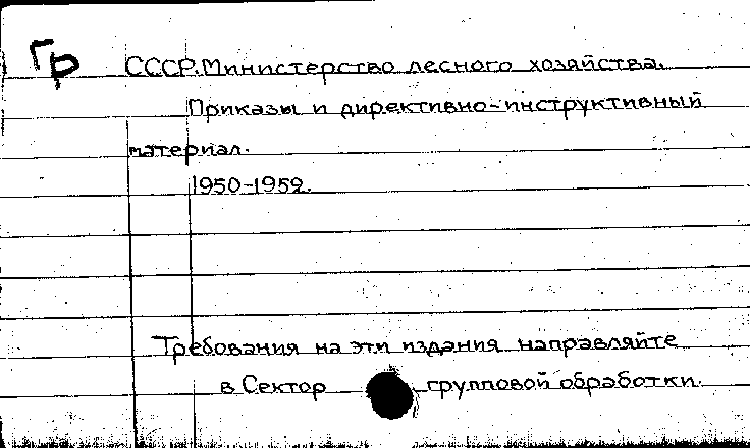 Гр СССР. Министерство лесного хозяйства.
Приказы и директивно-инструктивный
материал.
1950-1952.
Требования на эти издания направляйте
в Сектор групповой обработки.